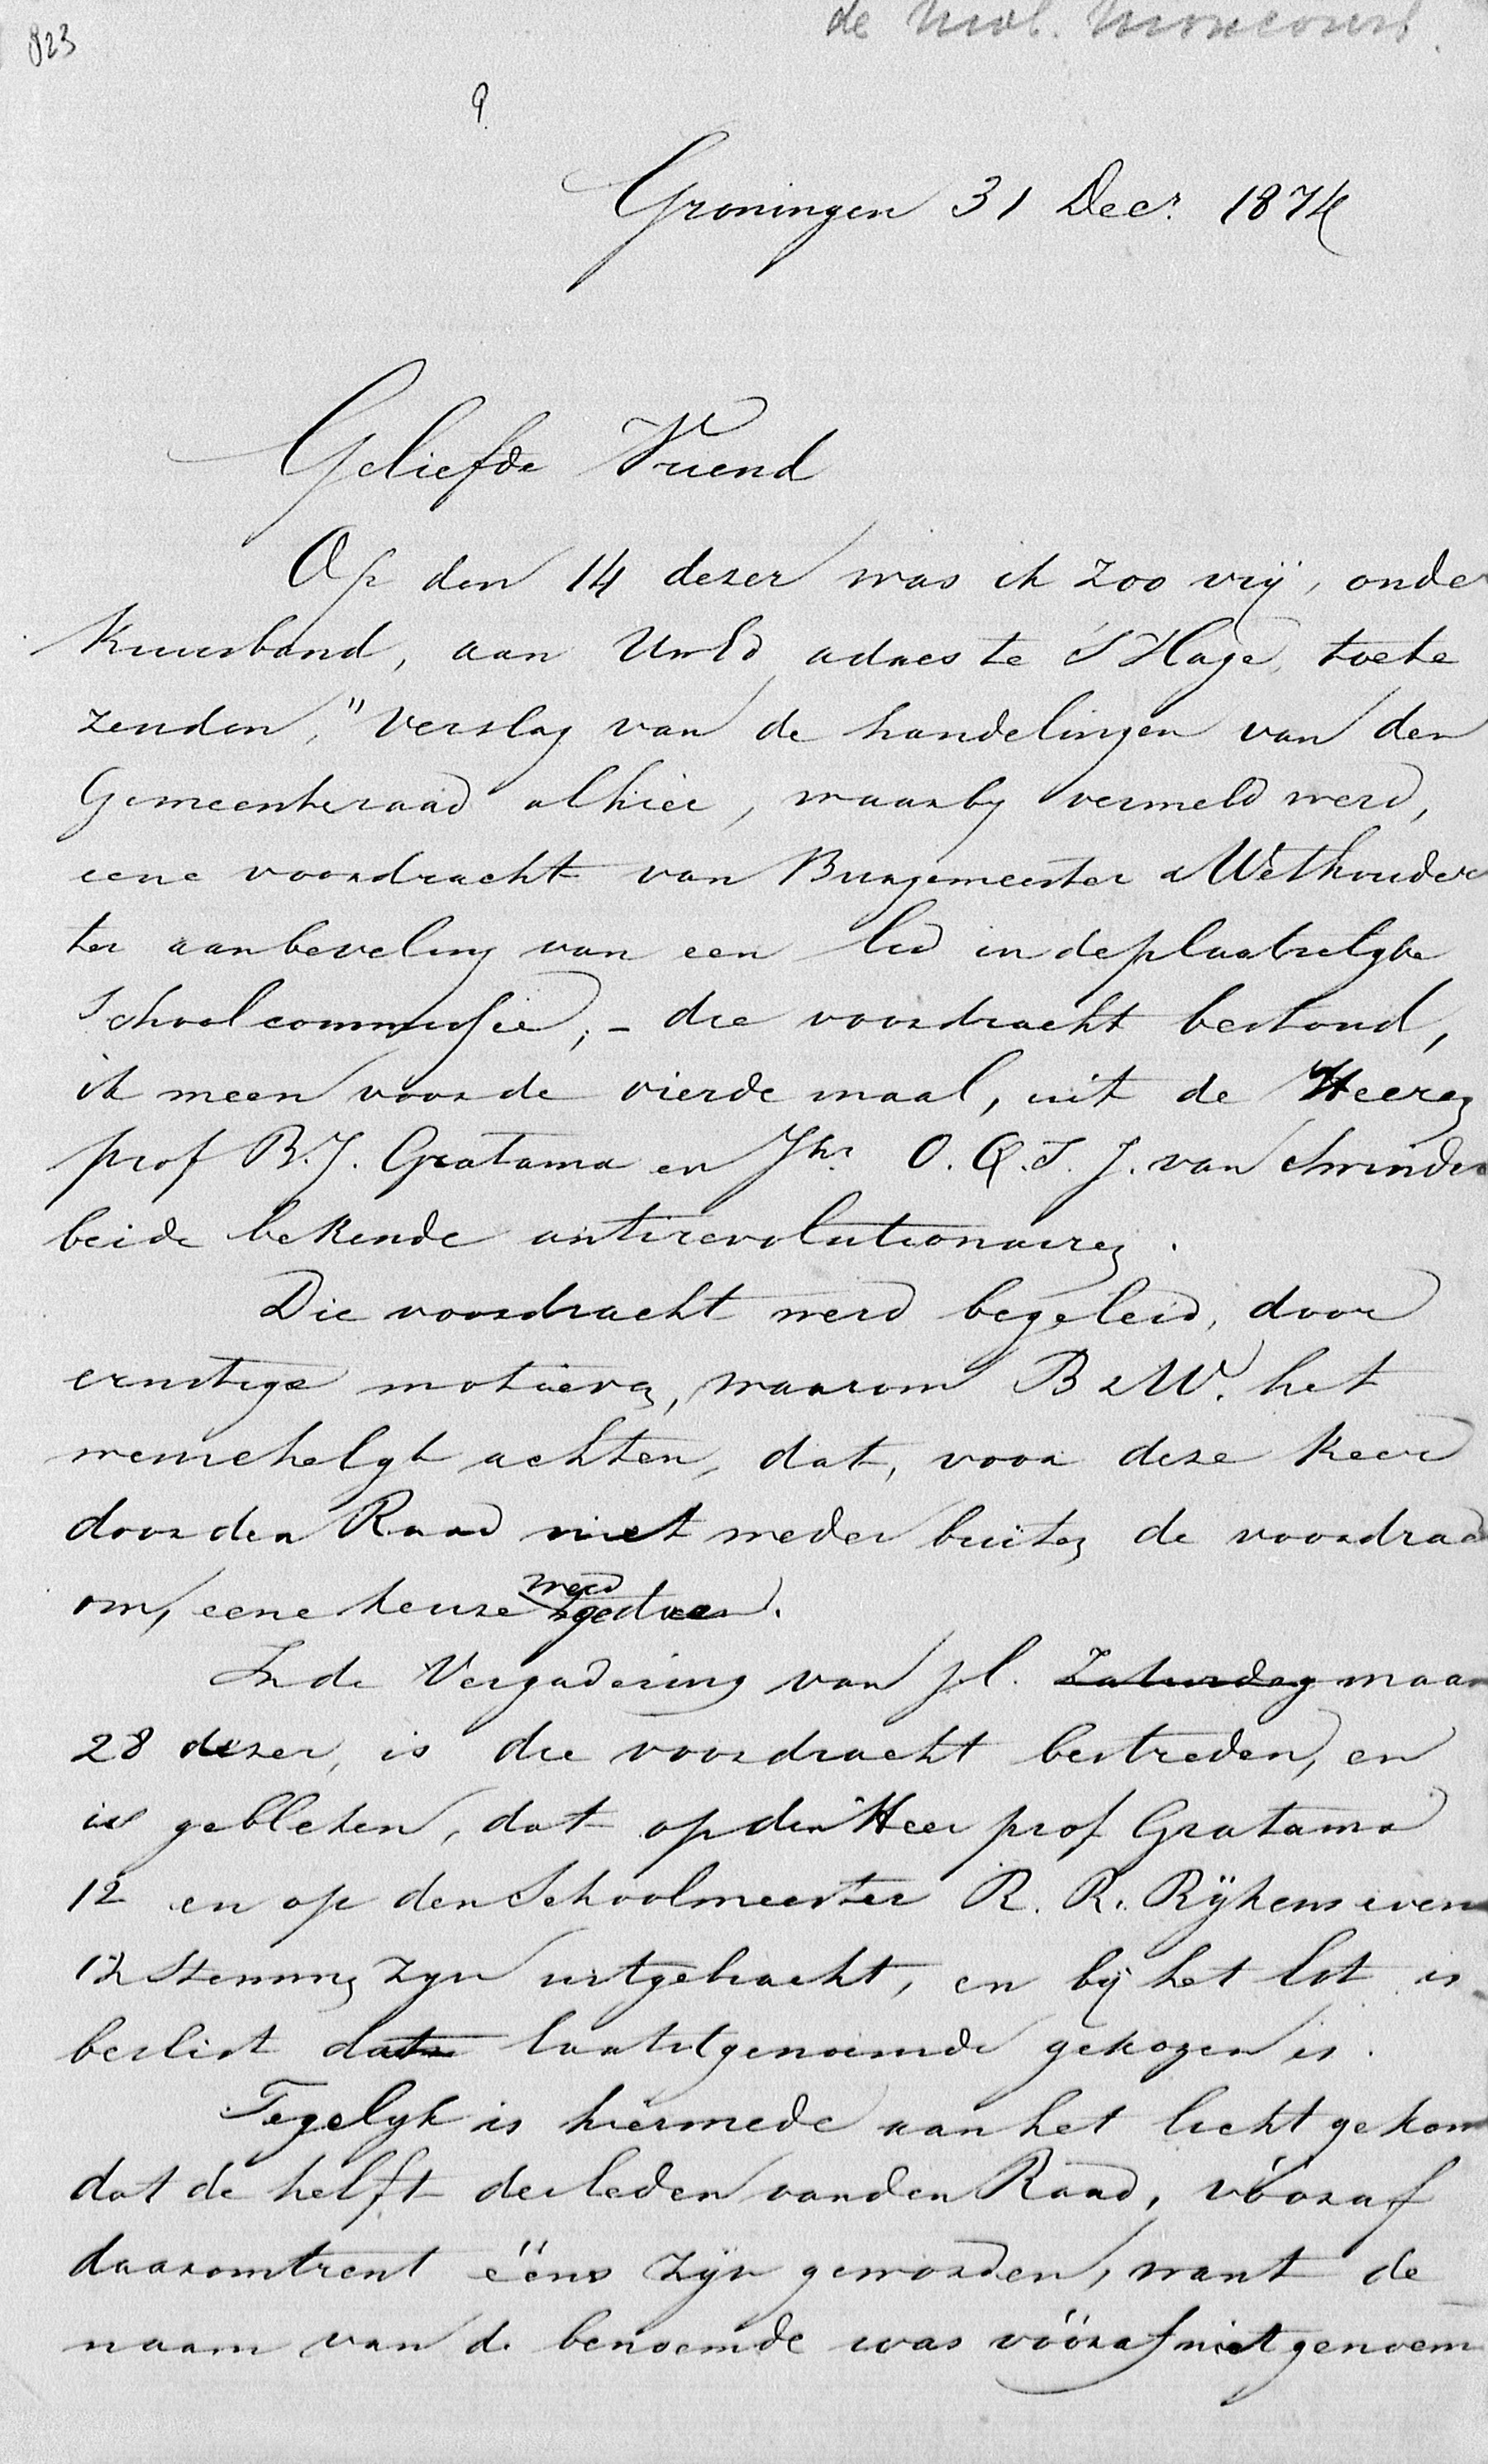 823
de Mol. Moncourt.
?
Groningen 31 Decr. 1874
Geliefde Vriend
Op den 14 dezer was ik zoo vrij, onder
Kruisband, aan UwEd adres te 'sHage, toe te
zenden, "Verslag van de handelingen van den
Gemeenteraad alhier, waarby vermeld werd,
eene voordracht van Burgemeester & Wethouder
ter aanbeveling van een lid in de plaatselyke
Schoolcommissie; - die voordracht bestond,
ik meen voor de vierde maal, uit de Heeren
prof B.J. Gratama en Jhr. O.Q.J.J. van Swinder
beide bekende antirevolutionairen.
Die voordracht werd begeleid, door
ernstige motieven, waarom B & W. het
wenschelyk achten, dat, voor deze keer
door den Raad niet weder buiten de voordrac
om, eene keuze werd gedaan.
In de Vergadering van jl. Zaturdag maan
28 dezer, is die voordracht bestreden, en
is gebleken, dat op den Heer prof Gratama
12 en op den Schoolmeester R. R. Rijkens even
12 stemmen zyn uitgebracht, en bij het lot is
beslist dat laatstgenoemde gekozen is.
Tegelyk is hiermede aan het licht gekom
dat de helft der leden van den Raad, vóóraf
daaromtrent ééns zijn geworden, want de
naam van de benoemde was vóóraf niet genoem